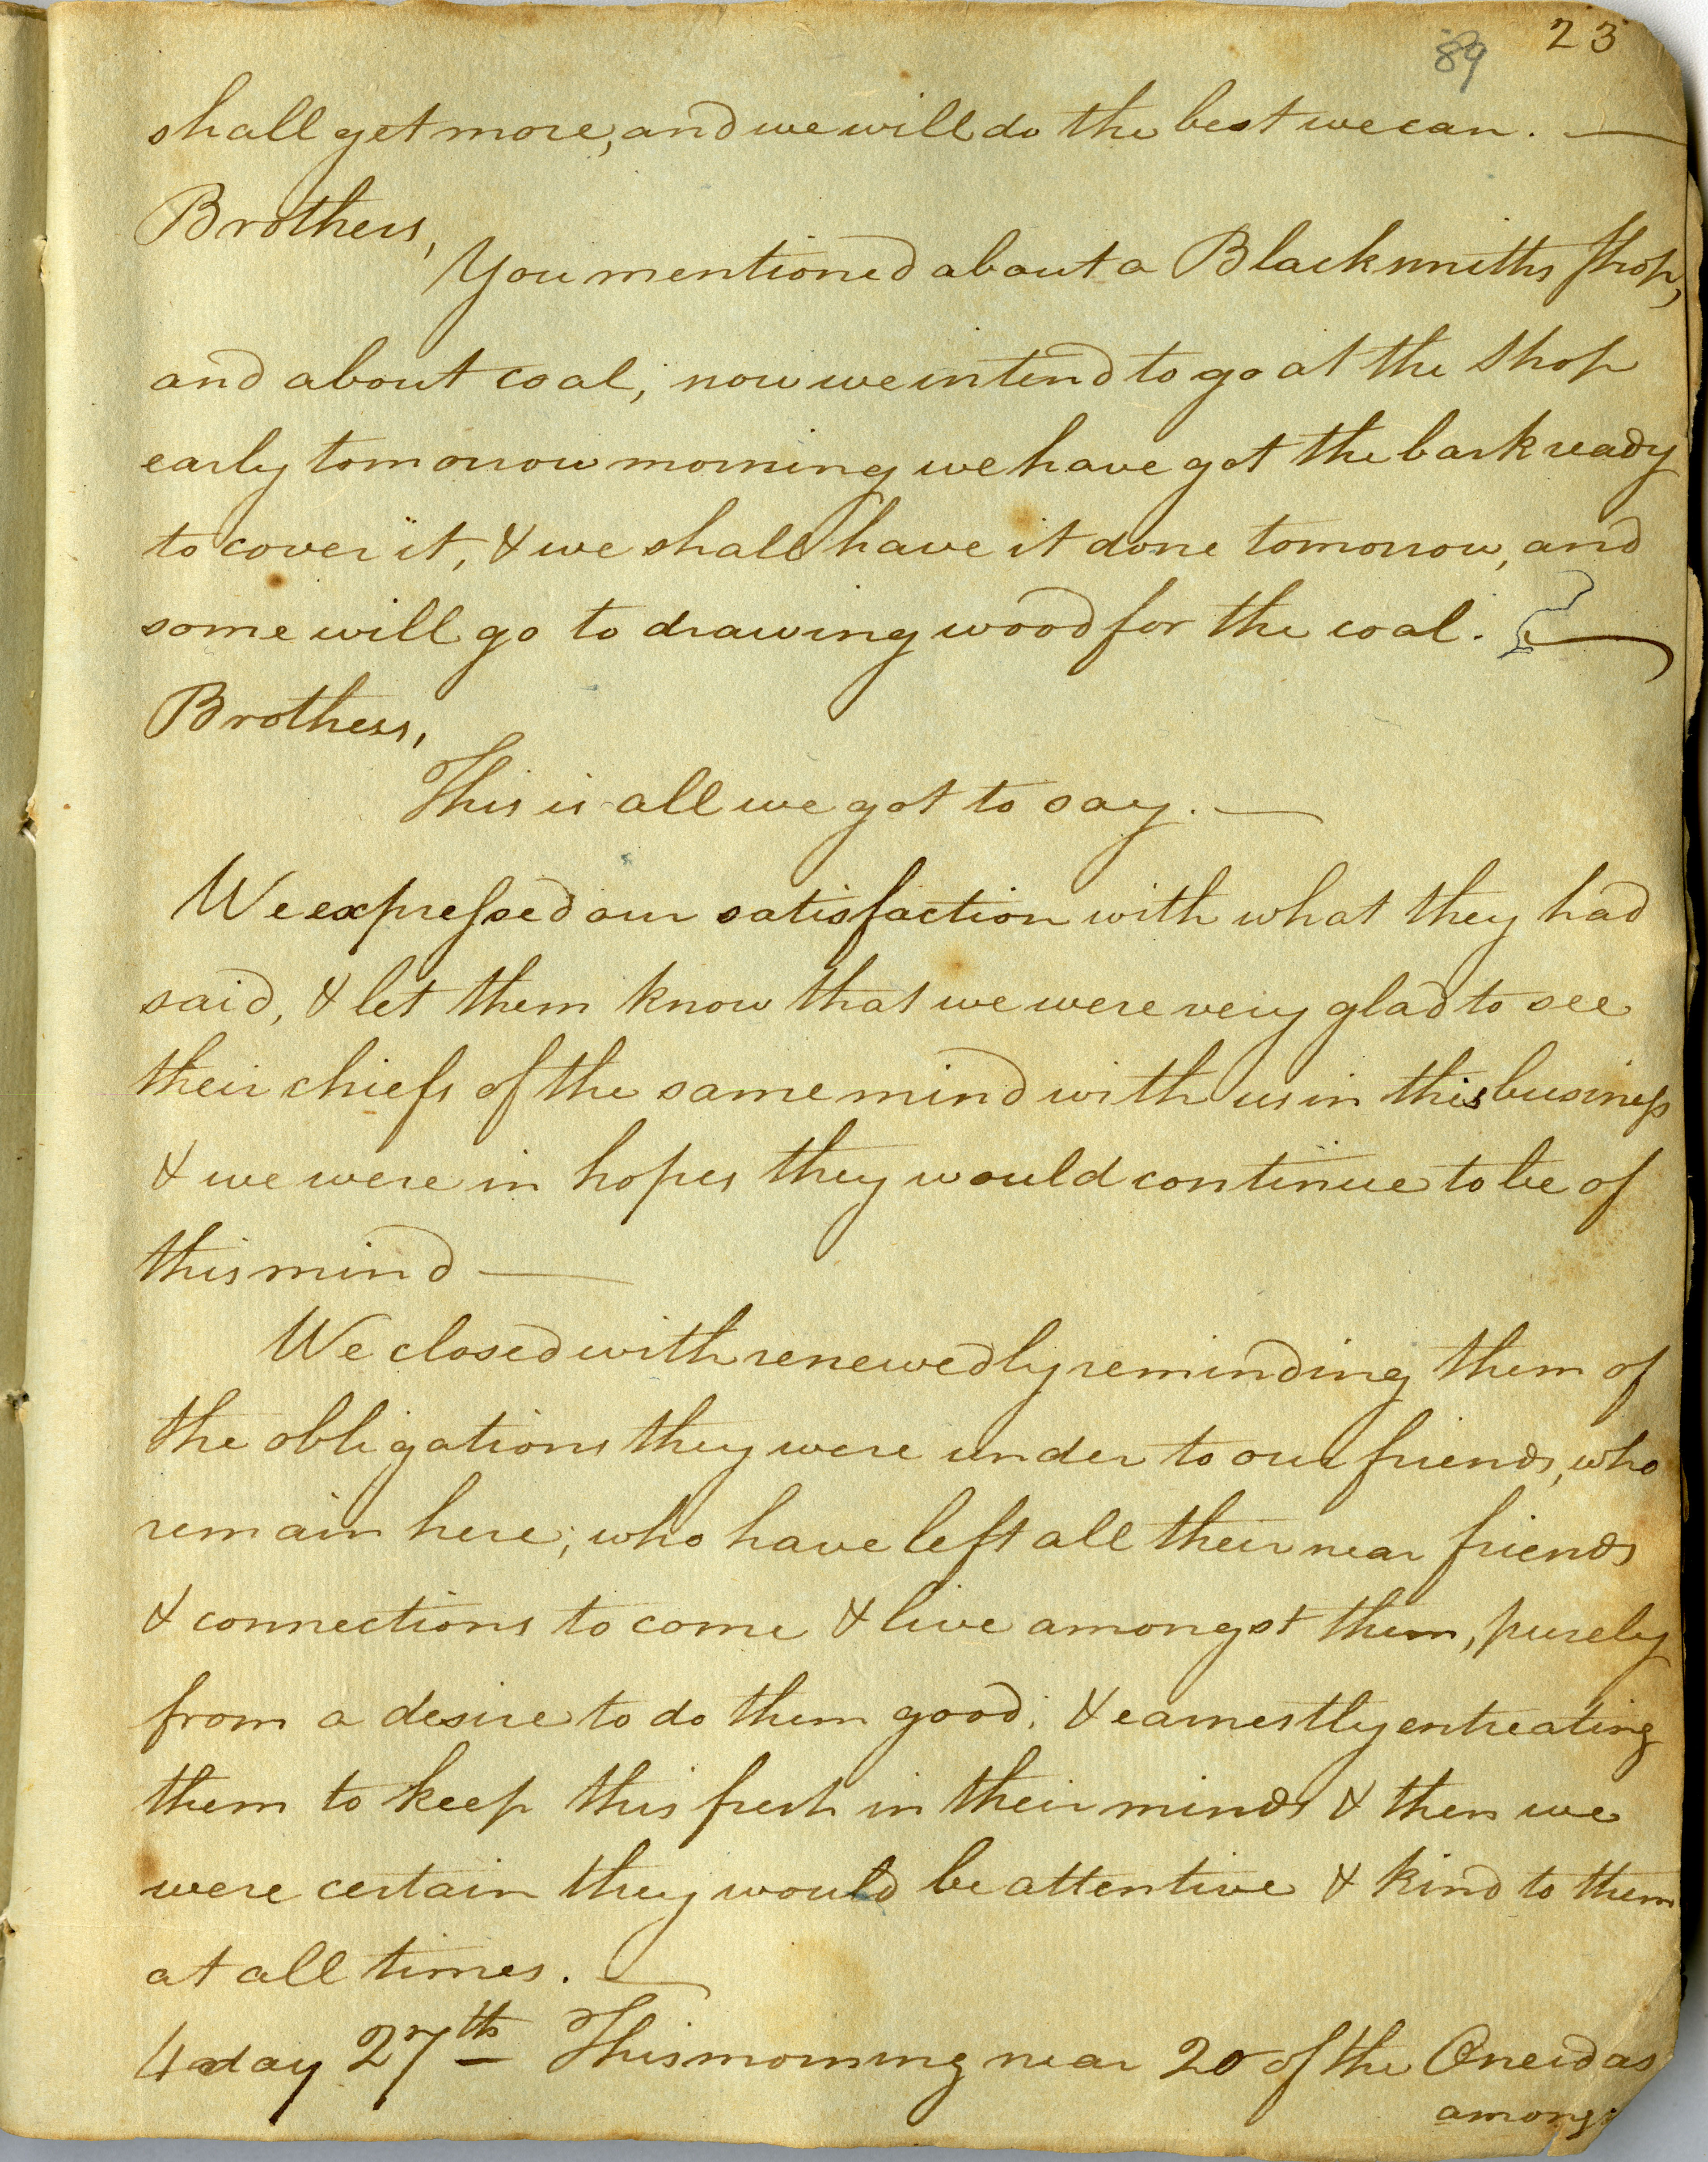 89 23
shall get more, and we will do the best we can. —
Brothers,
You mentioned about a Blacksmiths Shop,
and about coal; now we intend to go at the shop
early tomorrow morning we have got the bark ready
to cover it, & we shall have it done tomorrow, and
some will go to drawing wood for the coal. —
Brothers,
This is all we got to say. —
We expressed our satisfaction with what they had
said, & let them know that we were very glad to see
their chiefs of the same mind with us in this business
& we were in hopes they would continue to be of
this mind —
We closed with renewedly reminding them of
the obligations they were under to our friends, who
remain here; who have left all their near friends
& connections to come & live amongst them, purely
from a desire to do them good; & earnestly entreating
them to keep this fresh in their minds & then we
were certain they would be attentive & kind to them
at all times. —
4 day 27th This morning near 20 of the Oneidas
among: